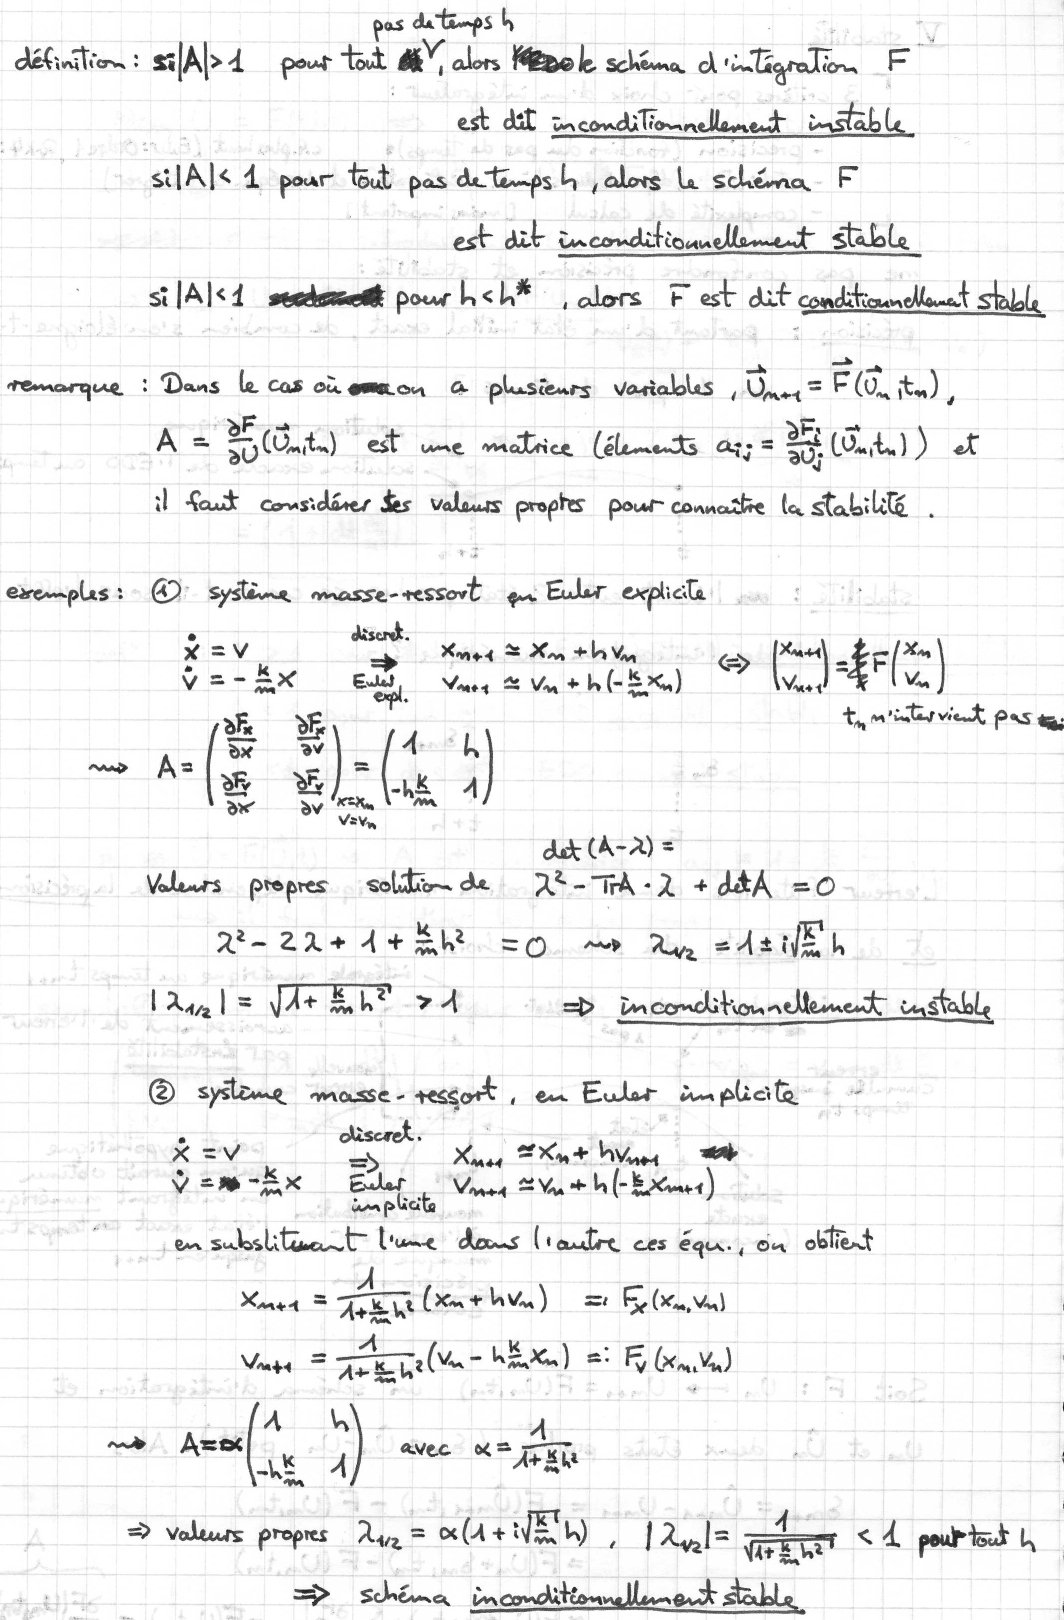 pas de temps h
définition : si |A| > 1 pour tout V, alors le schéma d'intégration F
est dit inconditionnellement instable
si |A| < 1 pour tout pas de temps h, alors le schéma F
est dit inconditionnellement stable
si |A| < 1 pour h < h* , alors F est dit conditionnellement stable
remarque : Dans le cas où on a plusieurs variables, U⃗ₙ₊₁ = F⃗(U⃗ₙ,tₙ),
A = ∂F/∂U (U⃗ₙ,tₙ) est une matrice (élements aᵢⱼ = ∂Fᵢ/∂Uⱼ (U⃗ₙ,tₙ)) et
il faut considérer ses valeurs propres pour connaître la stabilité.
exemples : ① système masse-ressort en Euler explicite
ẋ = v discret. xₙ₊₁ ≃ xₙ + h vₙ ⇔ (xₙ₊₁ vₙ₊₁) = F (xₙ vₙ)
v̇ = - k/m x ⇒ Euler expl. vₙ₊₁ ≃ vₙ + h(-k/m xₙ)
tₙ n'intervient pas
⇝ A = (∂Fₓ/∂x ∂Fₓ/∂v ; ∂Fᵥ/∂x ∂Fᵥ/∂v) x=xₙ v=vₙ = (1 h ; -h k/m 1)
det (A-λ) =
Valeurs propres solution de λ² - TrA · λ + detA = 0
λ² - 2λ + 1 + k/m h² = 0 ⇝ λ₁/₂ = 1 ± i√(k/m) h
|λ₁/₂| = √(1 + k/m h²) > 1 ⇒ inconditionnellement instable
② système masse-ressort, en Euler implicite
ẋ = v discret. xₙ₊₁ ≃ xₙ + h vₙ₊₁
v̇ = - k/m x ⇒ Euler implicite vₙ₊₁ ≃ vₙ + h(-k/m xₙ₊₁)
en substituant l'une dans l'autre ces équ., on obtient
xₙ₊₁ = 1/(1 + k/m h²) (xₙ + h vₙ) =: Fₓ(xₙ,vₙ)
vₙ₊₁ = 1/(1 + k/m h²) (vₙ - h k/m xₙ) =: Fᵥ(xₙ,vₙ)
⇝ A = α (1 h ; -h k/m 1) avec α = 1/(1 + k/m h²)
⇒ valeurs propres λ₁/₂ = α(1 + i√(k/m) h) , |λ₁/₂| = 1/√(1 + k/m h²) < 1 pour tout h
⇒ schéma inconditionnellement stable